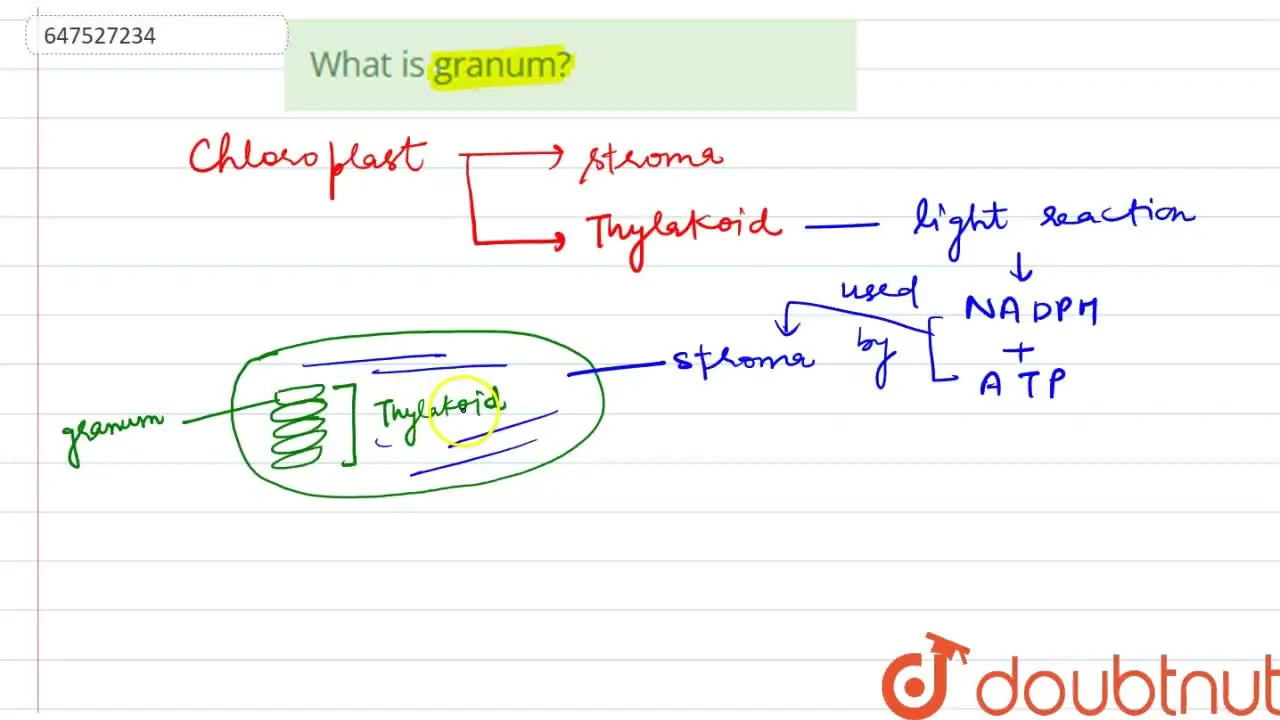 647527234
What is granum?
Chloroplast
stroma
Thylakoid
light reaction
used
by
NADPH
+
ATP
stroma
granum
Thylakoid
doubtnut